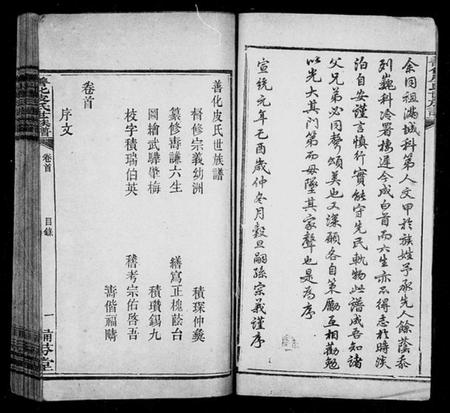 余同祖滿城科第人文甲於族姓予承先人餘蔭忝
列巍科冷署棲遲今成白首而六生亦不得志於時淡
泊自安謹言慎行實能守先民軌物此譜成吾知諸
父兄弟必同聲頌美也又深願各自策勵互相勸勉
以光大其門第而毋墜其家聲也是為序
宣統元年己酉歲仲冬月穀旦嗣孫宗義謹序
善化皮氏世族譜
督修宗義幼洲 積琛仲彝
纂修壽謙六生 繕寫正槐蔭台
圖繪武驊肇梅 積瓚錫九
校字積瑞伯英 稽考宗佑啓吾
壽偕福疇
卷首
序文
卷首
目錄
一